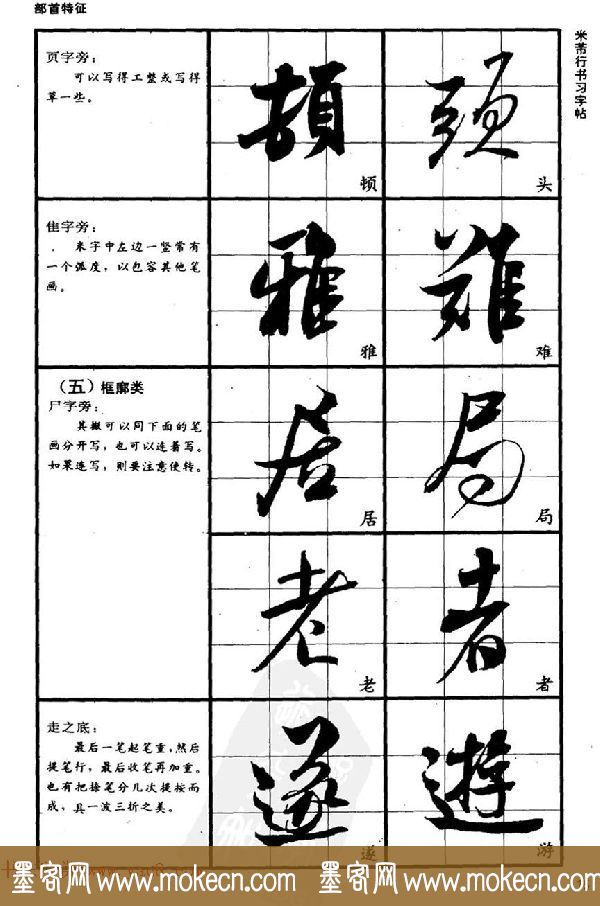 部首特征
米芾行书习字帖
页字旁：
可以写得工整或写得
草一些。
顿
头
隹字旁：
米字中左边一竖常有
一个弧度，以包容其他笔
画。
雅
难
（五）框廓类
尸字旁：
其撇可以同下面的笔
画分开写，也可以连着写。
如果连写，则要注意使转。
居
局
老
者
走之底：
最后一笔起笔重，然后
提笔行，最后收笔再加重。
也有把捺笔分几次提按而
成，具一波三折之美。
遂
游
墨客网 www.mokecn.com 墨客网 www.mokecn.com